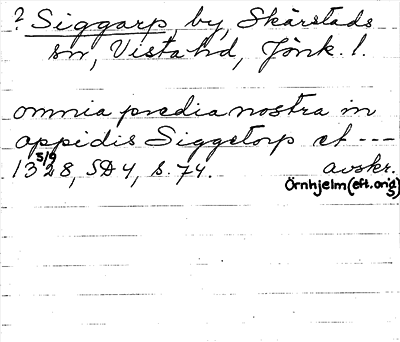 ? Siggarp by, Skärstads
sn, Vista hd, Jönk. l.
omnia predia nostra in
oppidis Siggetorp et ---
13 5/9 28, SD 4, s. 74. avskr.
Örnhjelm (eft. orig.)